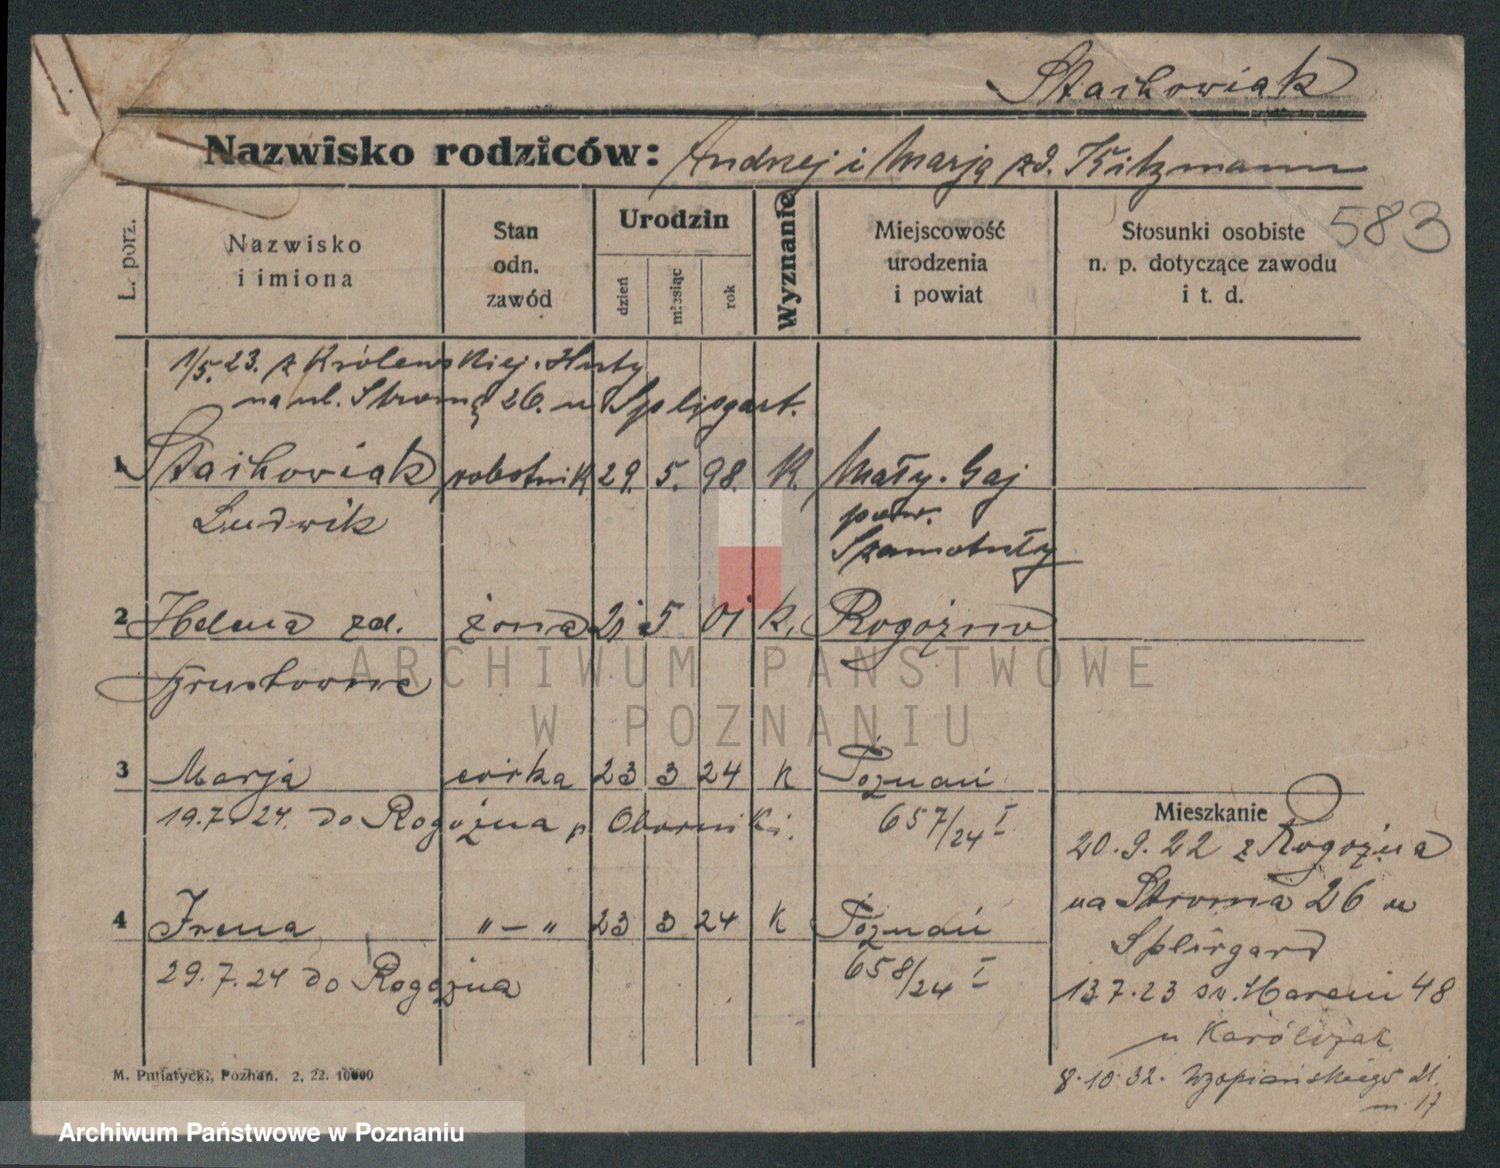 Stachowiak
Nazwisko rodziców: Andrzej i Marją zd. Kitzmann
583
L. porz.
Nazwisko
i imiona
Stan
odn.
zawód
Urodzin
dzień
miesiąc
rok
Wyznanie
Miejscowość
urodzenia
i powiat
Stosunki osobiste
n. p. dotyczące zawodu
i t. d.
1/5.23. z Królewskiej. Huty
na ul. Stromą 26. u Splisgart.
1 Stachowiak robotnik 29. 5. 98. K. Mały. Gaj
Ludwik pow.
Szamotuły
2 Helena zd. żona 21 5 01 K. Rogoźno
3 Marja córka 23 3 24 K Poznań
19.7.24. do Rogoźna p Oborniki. 657/24 I
4 Irena "–" 23 3 24 K Poznań
29.7.24 do Rogoźna 658/24 I
Mieszkanie
20.9.22 z Rogoźna
na Stroma 26 u
Splisgard
13.7.23 św. Marcin 48
u Karólczak
8.10.32. Wyspiańskiego 21.
m. 17
M. Putiatycki, Poznań. 2, 22. 10000
ARCHIWUM PAŃSTWOWE
W POZNANIU
Archiwum Państwowe w Poznaniu